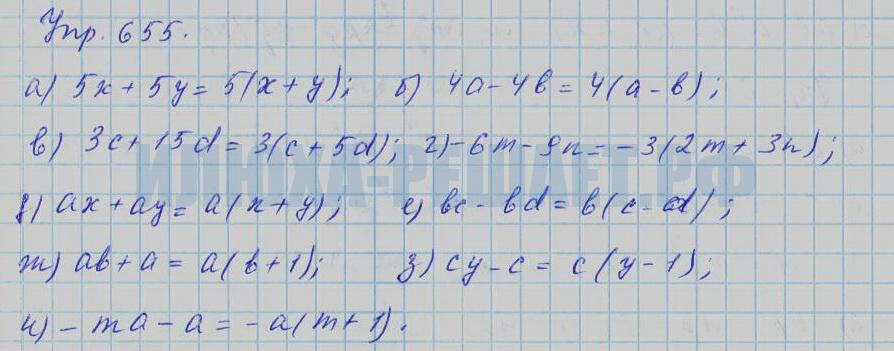 Упр. 655.
а) 5x + 5y = 5(x + y); б) 4a - 4b = 4(a - b);
в) 3c + 15d = 3(c + 5d); г) -6m - 9n = -3(2m + 3n);
д) ax + ay = a(x + y); е) bc - bd = b(c - d);
ИЛЮХА-РЕШАЕТ.РФ
ж) ab + a = a(b + 1); з) cy - c = c(y - 1);
и) - ma - a = -a(m + 1).